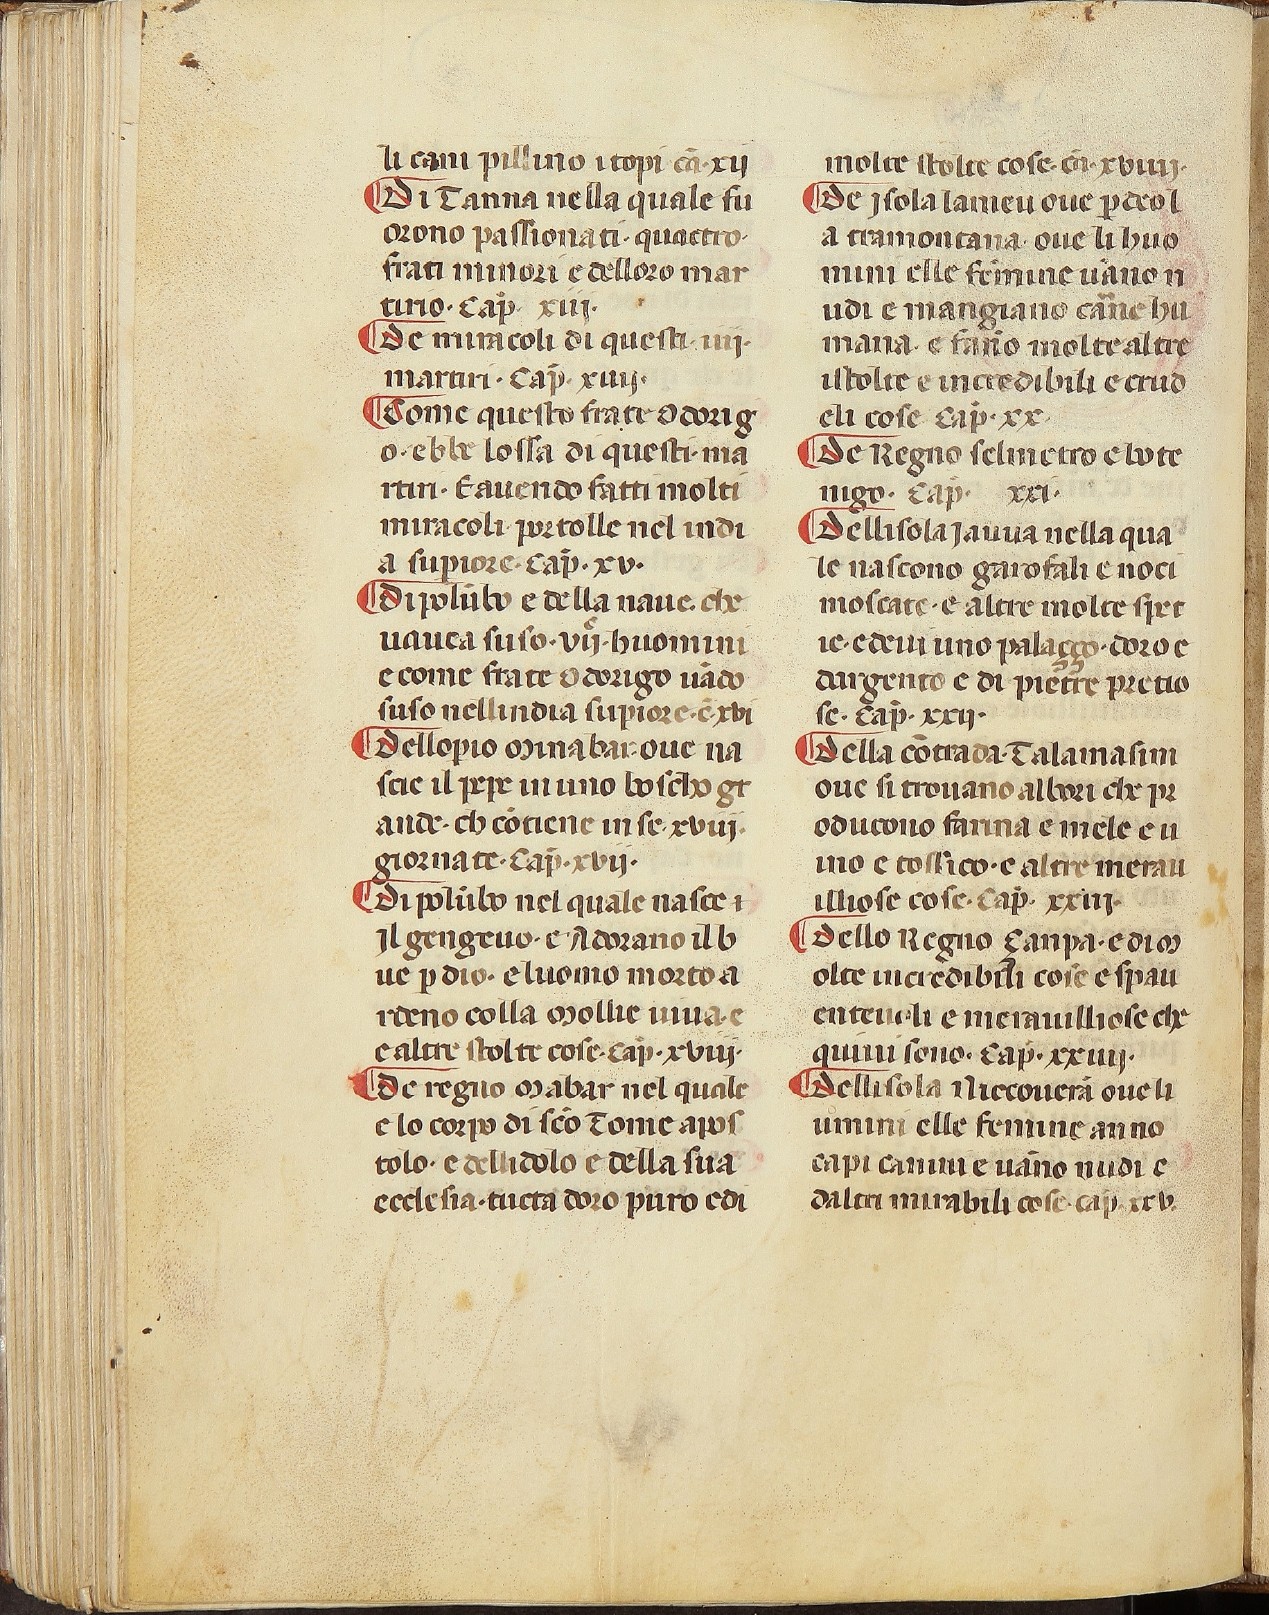 li cani pilliuo i topi cā·xij
Di Tanna nella quale fu
orono passionati· quactro·
frati minori e delloro mar
tirio· Cap̄· xiij·
De miracoli di questi· iiij·
martiri· Cap̄· xiiij·
Come questo frate Odorig
o· ebbe lossa di questi· ma
rtiri· E auendo fatti molti
miracoli· portolle nel indi
a supiore· Cap̄· xv·
Di polūbo e della naue· che
uauea suso· vijͨ· huomini
e come frate Odorigo uādo
suso nellindia supiore· c̄ xvi
Dellopio Minabar· oue na
scie il pepe in uno boscho gr
ande· ch cōtiene in se· xviij·
giornate· Cap̄· xvij·
Di polūbo nel quale nasce i
Jl gengeuo· e Adorano il b
ue p dio· e luomo morto a
rdeno colla Mollie uiua· e
e altre stolte cose· Cap̄· xviij·
De regno Mabar nel quale
e lo corpo di sc̄o Tome apos
tolo· e dellidolo e della sua
ecclesia· tucta doro puro e di
molte stolte cose· cā· xviiij·
De Jsola lameu oue p deo l
a tramontana· oue li huo
mini elle femine uāno n
udi e mangiano carne hu
mana· e fāno molte altre
istolte e incredibili e crud
eli cose Cap̄· xx·
De Regno selmetro e bote
nigo· Cap̄· xxi·
Dellisola Jauua nella qua
le nascono garofali e noci
moscate· e altre molte spet
ie· edeui uno palacço· doro e
dargento e di pietre pretio
se· Cap̄· xxij·
Della cōtrada· Talamasim
oue si trouano albori che pr
oducono farina e mele e ui
ino e tossico· e altre merau
illiose cose· Cap̄· xxiij·
Dello Regno Canpa· e di M
olte incredibili cose e spau
enteuoli e merauilliose che
quiui sono· Cap̄· xxiiij·
Dellisola Niccouerā oue li
umini elle femine anno
capi canini e uāno nudi e
daltri mirabili cose· cap̄· xxv·